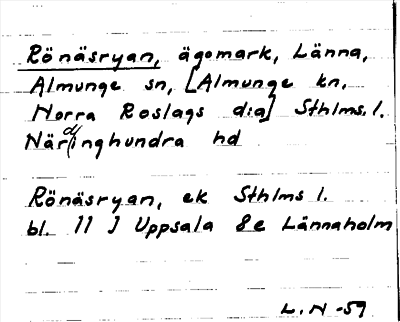 Rönäsryan, ägomark, Länna,
Almunge sn, [Almunge kn,
Norra Roslags d:a] Sthlms. l.
Närdinghundra hd
Rönäsryan, ek Sthlms l.
bl. 11 J Uppsala 8e Lännaholm
L. N -59